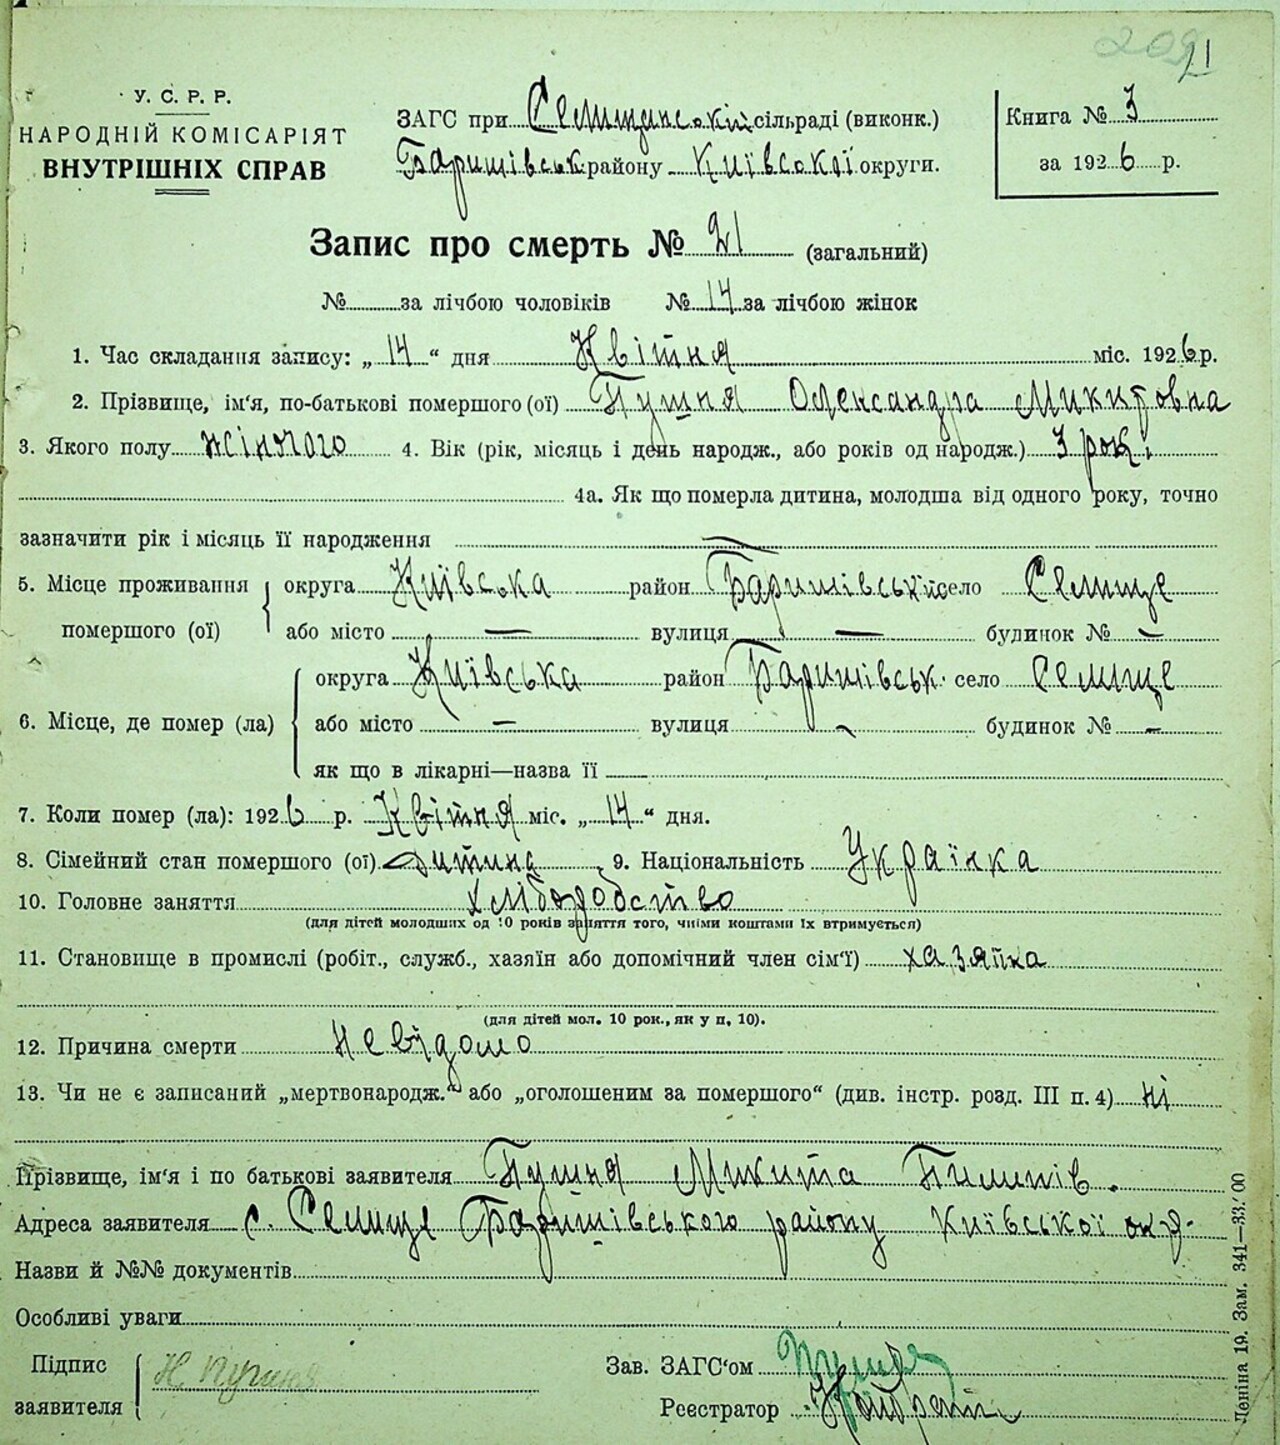 209
21
У. С. Р. Р.
НАРОДНІЙ КОМІСАРІЯТ
ВНУТРІШНІХ СПРАВ
ЗАГС при Селищанській сільраді (виконк.)
Баришівськ району Київської округи.
Книга № 3
за 1926 р.
Запис про смерть № 21 (загальний)
№ за лічбою чоловіків № 14 за лічбою жінок
1. Час складання запису: „ 14 “ дня Квітня міс. 1926 р.
2. Прізвище, ім‘я, по-батькові помершого (ої) Пушня Олександра Микитовна
3. Якого полу жіночого 4. Вік (рік, місяць і день народж., або років од народж.) 3 рокі
4а. Як що померла дитина, молодша від одного року, точно
зазначити рік і місяць її народження —
5. Місце проживання помершого (ої) округа Київська район Баришівський село Селище
або місто — вулиця — будинок № —
6. Місце, де помер (ла) округа Київська район Баришівськ. село Селище
або місто — вулиця — будинок № —
як що в лікарні—назва її
7. Коли помер (ла): 1926 р. Квітня міс. „ 14 “ дня.
8. Сімейний стан помершого (ої) Дитина 9. Національність Українка
10. Головне заняття хліборобство
(для дітей молодших од 10 років заняття того, чиїми коштами їх втримується)
11. Становище в промислі (робіт., служб., хазяїн або допомічний член сім‘ї) хазяйка
(для дітей мол. 10 рок., як у п. 10).
12. Причина смерти Невідомо
13. Чи не є записаний „мертвонародж.“ або „оголошеним за помершого“ (див. інстр. розд. III п. 4) ні
Прізвище, ім‘я і по батькові заявителя Пушня Микита Пименів.
Адреса заявителя с. Селище Баришівського району Київської окр.
Назви й №№ документів
Особливі уваги
Підпис заявителя Н. Пушня
Зав. ЗАГС‘ом
Реєстратор
Леніна 19. Зам. 341—33.